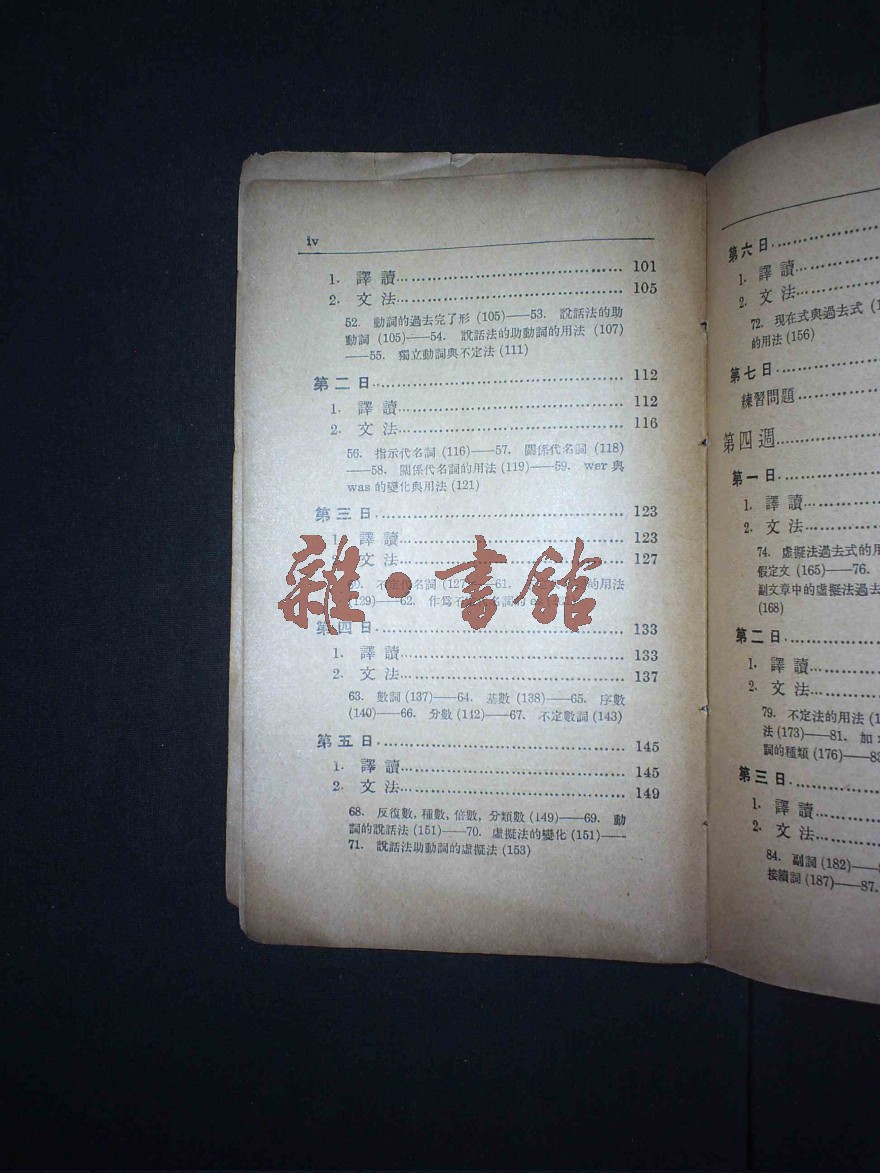 iv
1. 譯讀 101
2. 文法 105
52. 動詞的過去完了形 (105)——53. 說話法的助
動詞 (105)——54. 說話法的助動詞的用法 (107)
——55. 獨立動詞與不定法 (111)
第二日 112
1. 譯讀 112
2. 文法 116
56. 指示代名詞 (116)——57. 關係代名詞 (118)
——58. 關係代名詞的用法 (119)——59. wer 與
was 的變化與用法 (121)
第三日 123
譯讀 123
文法 127
不定代名詞 (127 61. 的用法
(129)——62. 作爲不 名詞的
第四日 133
1. 譯讀 133
2. 文法 137
63. 數詞 (137)——64. 基數 (138)——65. 序數
(140)——66. 分數 (142)——67. 不定數詞 (143)
第五日 145
1. 譯讀 145
2. 文法 149
68. 反復數, 種數, 倍數, 分類數 (149)——69. 動
詞的說話法 (151)——70. 虛擬法的變化 (151)——
71. 說話法助動詞的虛擬法 (153)
雜·書館
第六日
1. 譯讀
2. 文法
72. 現在式與過去式 (1
的用法 (156)
第七日
練習問題
第四週
第一日
1. 譯讀
2. 文法
74. 虛擬法過去式的用
假定文 (165)——76.
副文章中的虛擬法過去
(168)
第二日
1. 譯讀
2. 文法
79. 不定法的用法 (1
法 (173)——81. 加
詞的種類 (176)——83
第三日
1. 譯讀
2. 文法
84. 副詞 (182)——
接續詞 (187)——87.